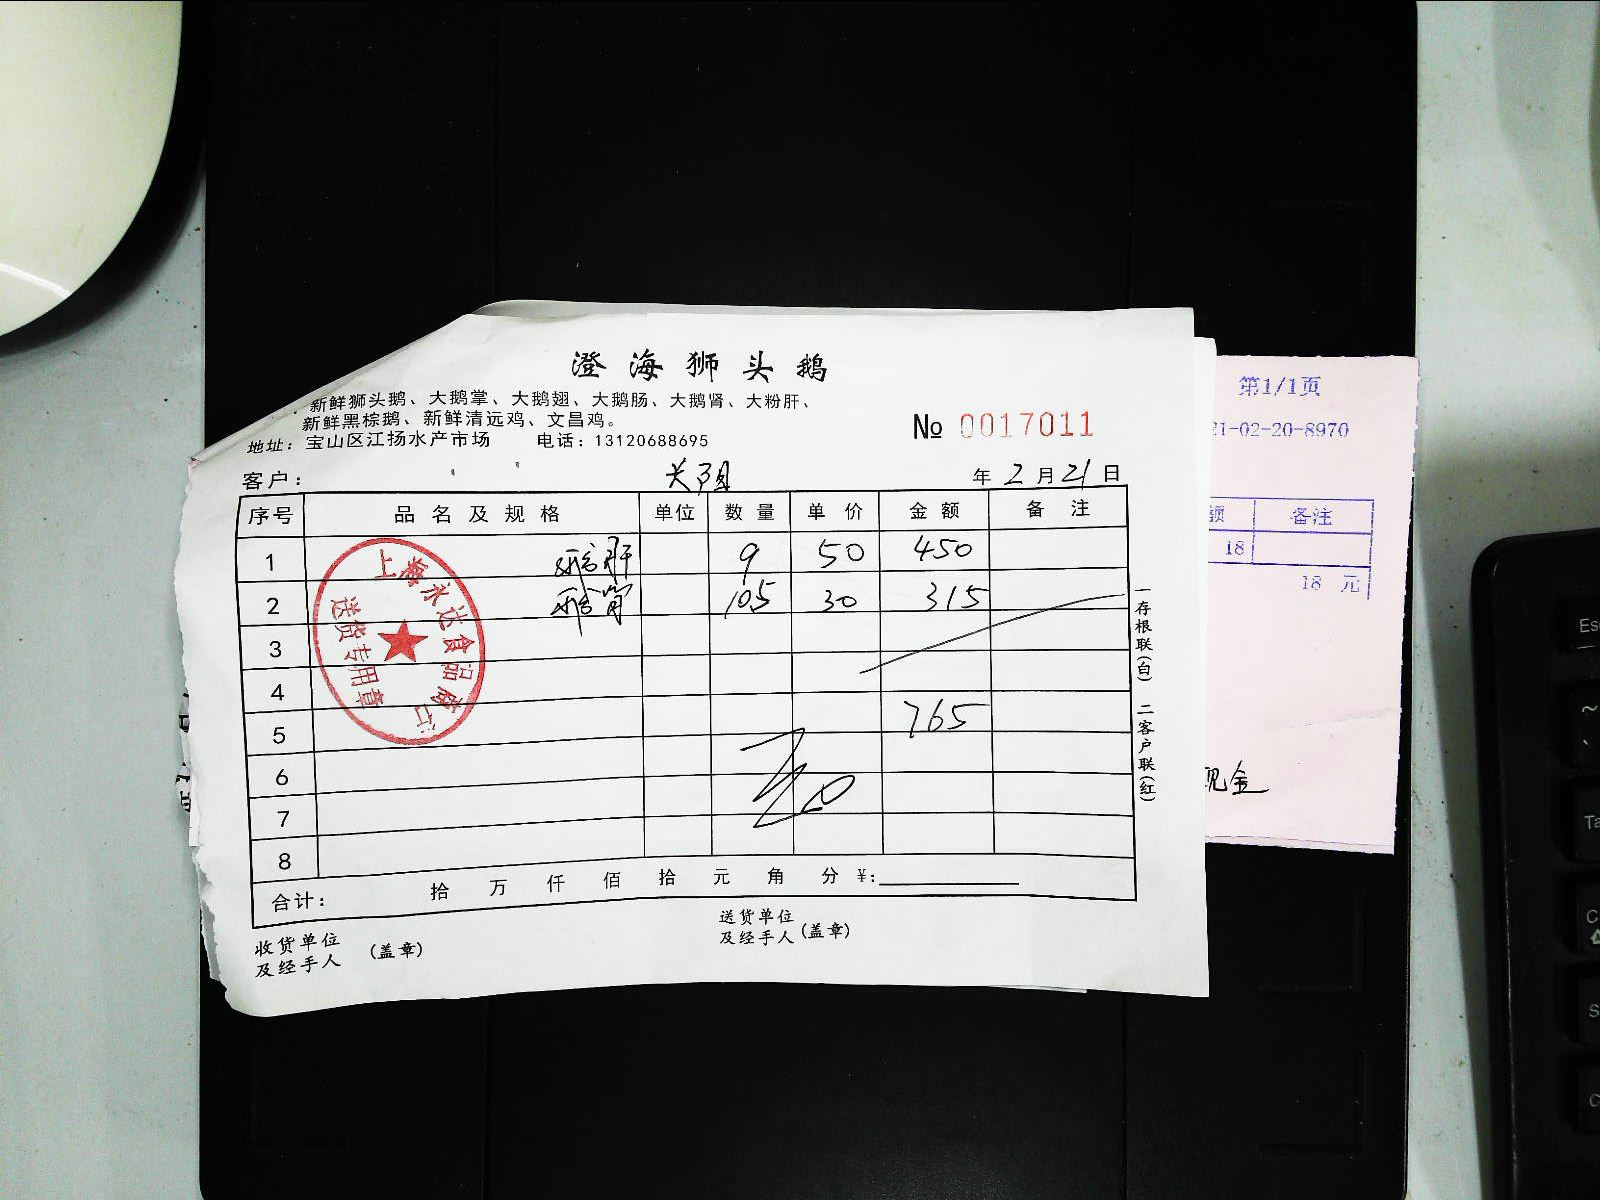 澄海狮头鹅
新鲜狮头鹅、大鹅掌、大鹅翅、大鹅肠、大鹅肾、大粉肝、
新鲜黑棕鹅、新鲜清远鸡、文昌鸡。
地址：宝山区江扬水产市场 电话：13120688695
№ 0017011
客户： 年 2 月 21 日
序号 品名及规格 单位 数量 单价 金额 备注
1 鹅肝 9 50 450
2 105 30 315
3
4
5 765
6
7
8
合计： 拾 万 仟 佰 拾 元 角 分 ¥:
收货单位
及经手人 (盖章)
送货单位
及经手人 (盖章)
一存根联(白) 二客户联(红)
送货专用章
第1/1页
21-02-20-8970
额 备注
18
18 元
现金
Esc
~